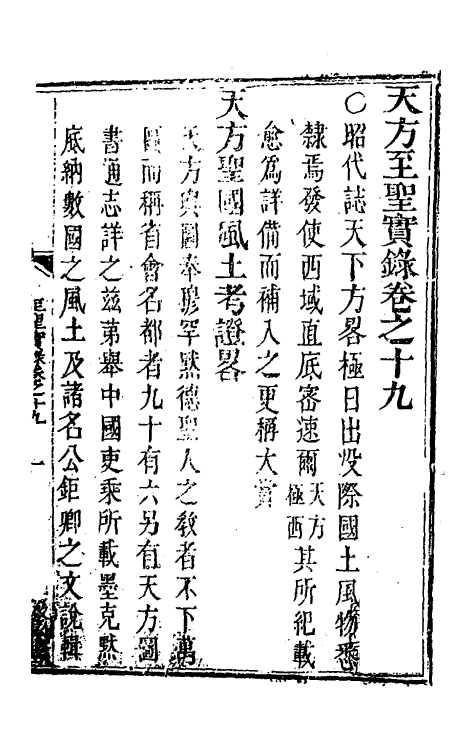 天方至聖實錄卷之十九
○昭代誌天下方畧極日出沒際國土風物悉
隸焉發使西域直底密速爾天方極西其所紀載
愈為詳備而補入之更稱大賞
天方聖國風土考證畧
天方輿圖奉穆罕默德聖人之敎者不下萬
國而稱省會名都者九十有六另有天方圖
書通志詳之茲第舉中國吏乘所載墨克默
底納數國之風土及諸名公鉅卿之文說輯
至聖實錄卷之十九
一